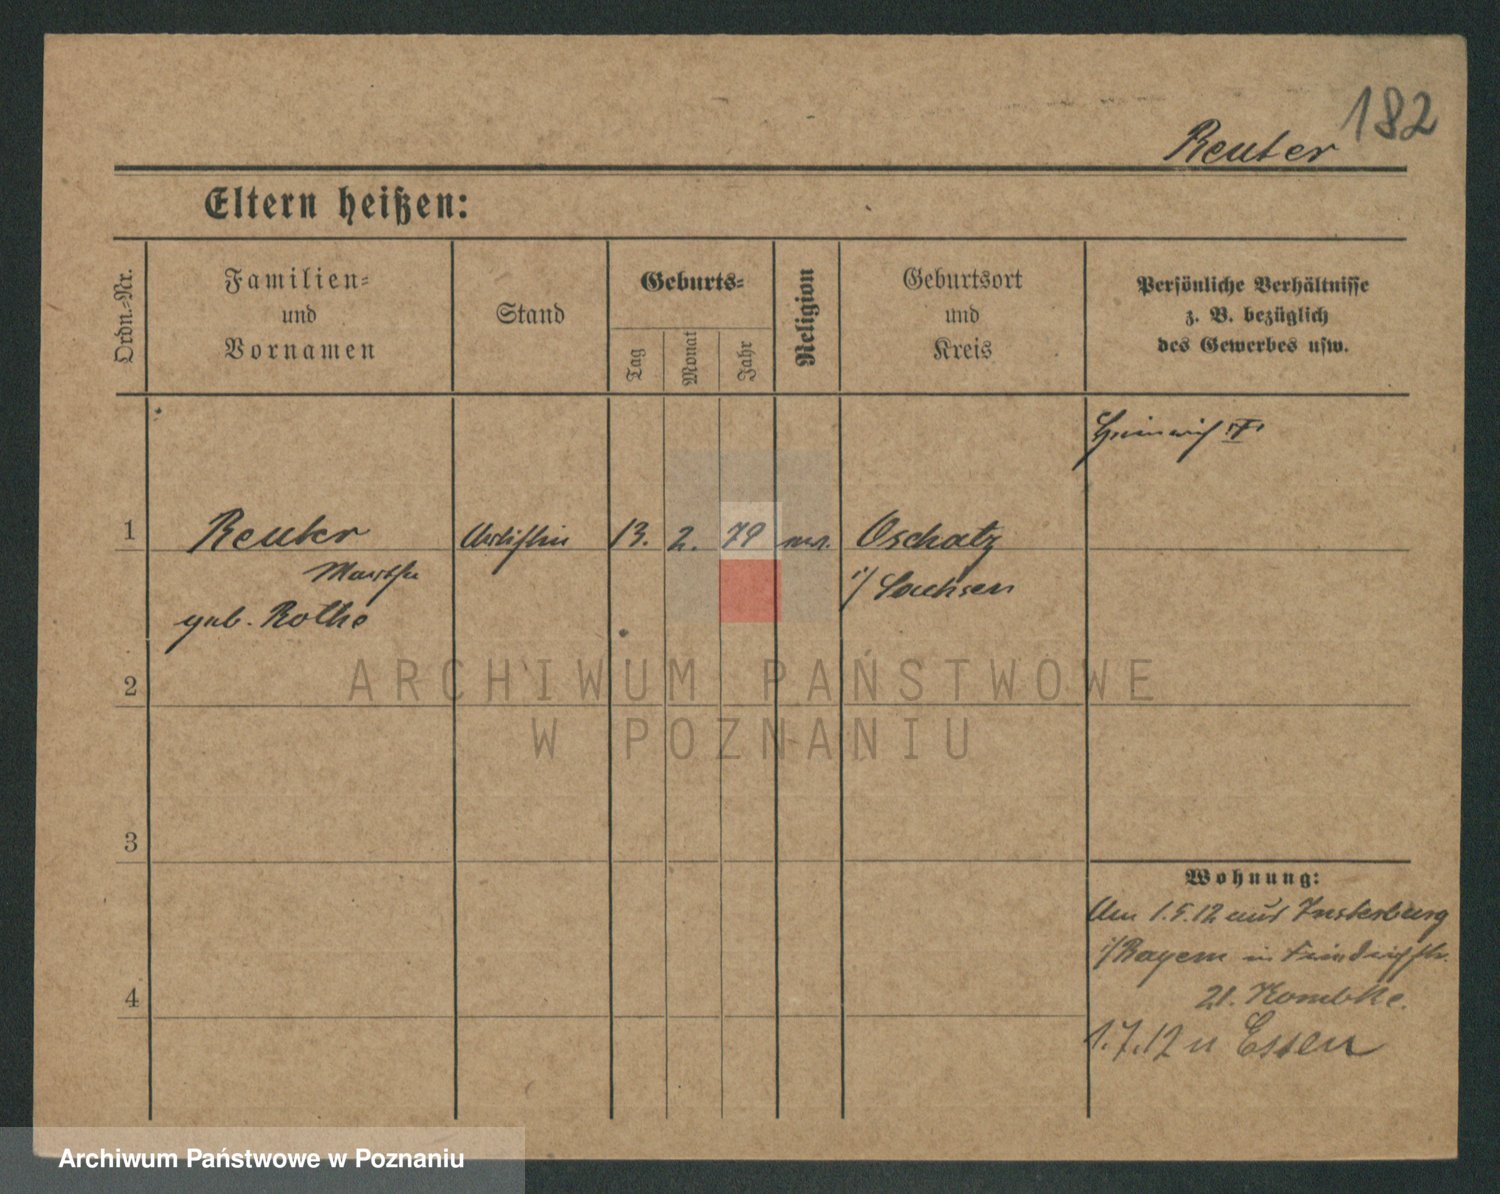 182
Reuter
Eltern heißen:
Ordn.-Nr.
Familien-
und
Vornamen
Stand
Geburts-
Tag
Monat
Jahr
Religion
Geburtsort
und
Kreis
Persönliche Verhältnisse
z. B. bezüglich
des Gewerbes usw.
1
Reuter
Martha
geb. Rothe
Artistin
13.
2.
79
Oschatz
i/ Sachsen
Heinrich
2
3
4
Wohnung:
Am 1.5.12 aus Insterburg
i/Bayern in Friedrichstr.
21.
1.7.12 n Essen
ARCHIWUM PAŃSTWOWE
W POZNANIU
Archiwum Państwowe w Poznaniu